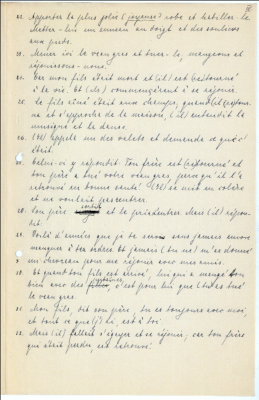 22. Apporter la plus jolie (joyeuse) robe et habiller le
Mettez-lui un anneau au doigt et des souliers
aux pieds.
23. Mener ici le veau gras et tuer-le, mangeons et
réjouissons-nous.
24. Car mon fils était mort et (il) est (re)tourné
à la vie. Et (ils) commençaient à se réjouir.
25. Le fils aîné était aux champs, quand (il) (re)tour-
na et s'approche de la maison, (il) entendit la
musique et la danse.
26. (Il) appela un des valets et demanda ce que c'
était.
27. Celui-ci y répondit. Ton frère est (re)tourné et
ton père a tué votre veau gras parce qu'il l'a
retrouvé en bonne santé. (Il) se mit en colère
et ne voulait pas rentrer.
28. Son père sortit et le pria d'entrer. Mais (il) répon-
dit.
29. Voilà d'années que je te sers sans jamais avoir
manquer à tes ordres et jamais (tu ne) m'as donné
un chevreau pour me réjouir avec mes amis.
30. Et quand ton fils est arrivé, lui qui a mangé ton
bien avec des filles, c'est pour lui que (tu) as tué
le veau gras.
31. Mon fils, dit son père, tu es toujours avec moi,
et tout ce que (j')ai, est à toi.
32. Mais (il) fallait s'égayer et se réjouir, car ton frère
qui était perdu, est retrouvé.